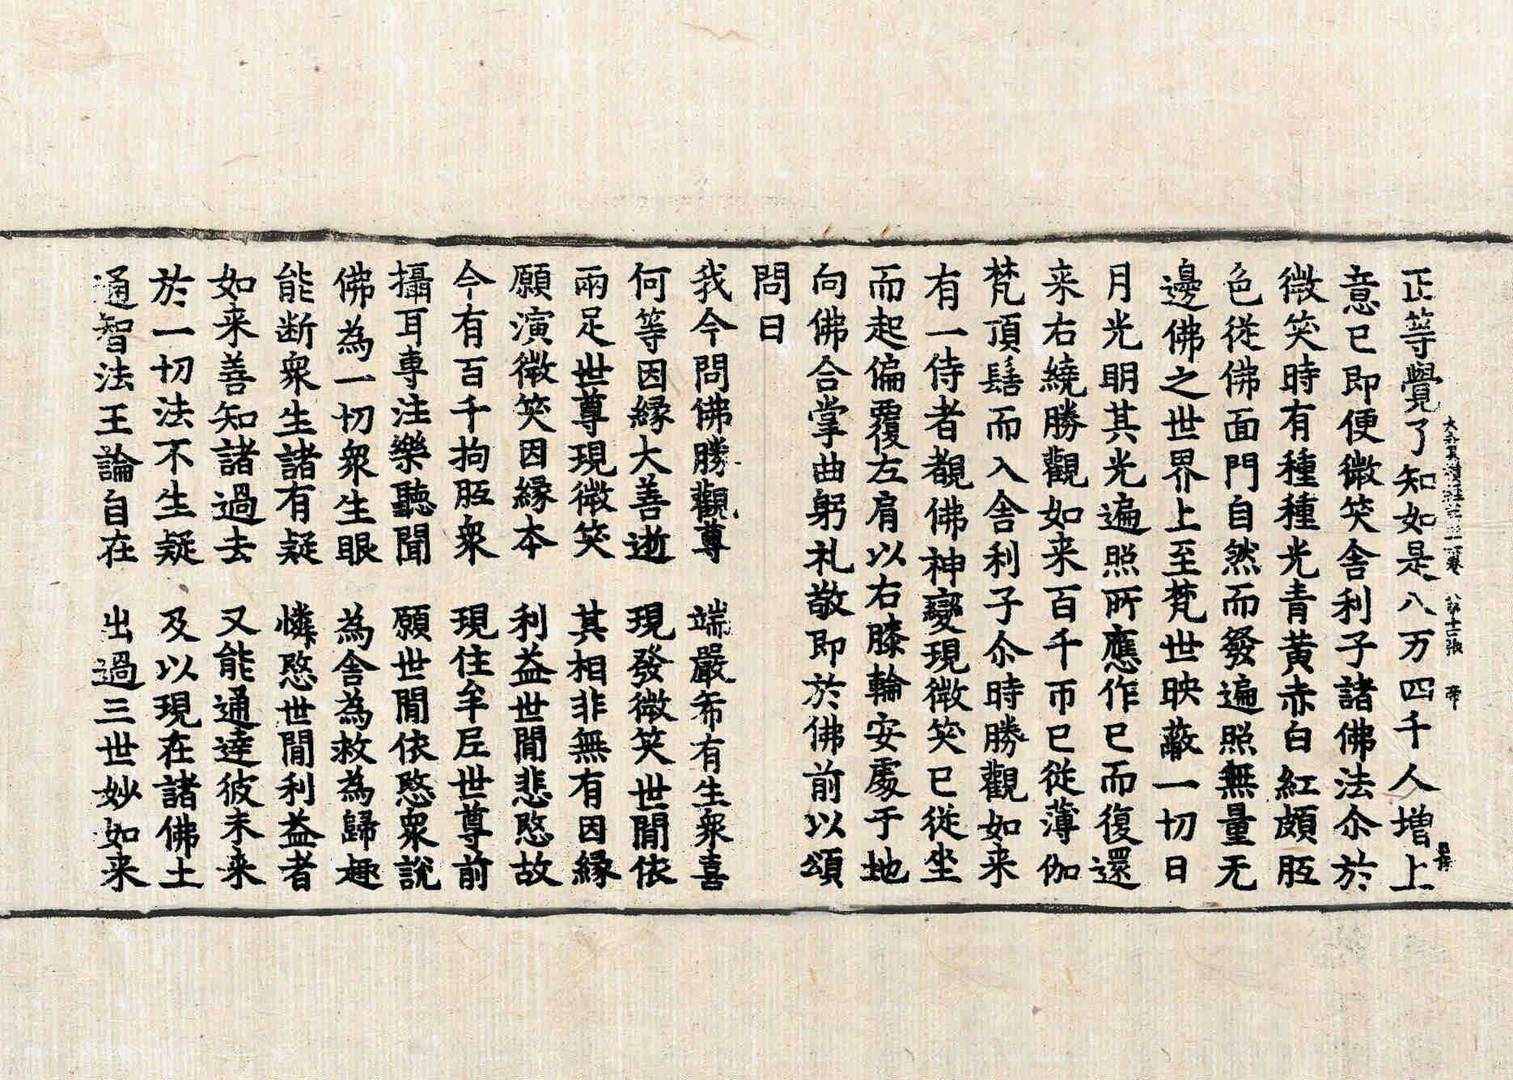 正等覺了知如是八万四千人增上
意已即便微笑舍利子諸佛法尒於
微笑時有種種光青黄赤白紅頗胝
色從佛面門自然而發遍照無量无
邊佛之世界上至梵世映蔽一切日
月光明其光遍照所應作已而復還
来右繞勝觀如来百千帀已從薄伽
梵頂髻而入舍利子尒時勝觀如来
有一侍者覩佛神變現微笑已從坐
而起偏覆左肩以右膝輪安處于地
向佛合掌曲躬礼敬即於佛前以頌
問曰
我今問佛勝觀尊 端嚴希有生衆喜
何等因緣大善逝 現發微笑世間依
兩足世尊現微笑 其相非無有因緣
願演微笑因緣本 利益世間悲愍故
今有百千拘胝衆 現住牟尼世尊前
攝耳專注樂聽聞 願世間依愍衆說
佛為一切衆生眼 為舍為救為歸趣
能断衆生諸有疑 憐愍世間利益者
如来善知諸過去 又能通達彼未来
於一切法不生疑 及以現在諸佛土
通智法王論自在 出過三世妙如来